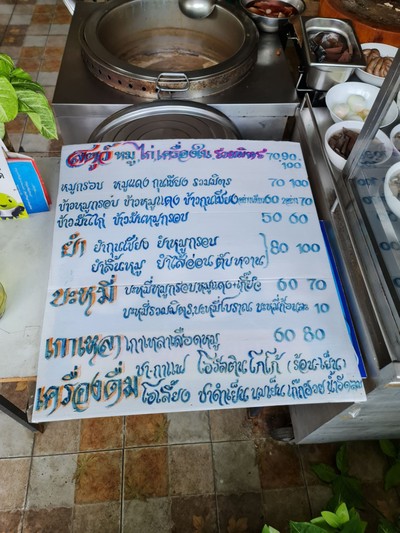 สตูว์ หมู ไก่ เครื่องใน รวมมิตร 70 90 100
หมูกรอบ หมูแดง กุนเชียง รวมมิตร 70 100
ข้าวหมูกรอบ ข้าวหมูแดง ข้าวกุนเชียง 60 70
ข้าวมันไก่ ข้าวมันหมูกรอบ 50 60
ยำ ยำกุนเชียง ยำหมูกรอบ 80 100
ยำลิ้นหมู ยำไส้อ่อน ตับหวาน
บะหมี่ บะหมี่หมูกรอบ/หมูแดง+เกี๊ยว 60 70
บะหมี่รวมมิตร,บะหมี่โบราณ บะหมี่ก้อนละ 10
เกาเหลา เกาเหลาเลือดหมู 60 80
เครื่องดื่ม ชา กาแฟ โอวัลติน โกโก้ (ร้อน-เย็น)
โอเลี้ยง ชาดำเย็น นมเย็น เก๊กฮวย น้ำอัดลม